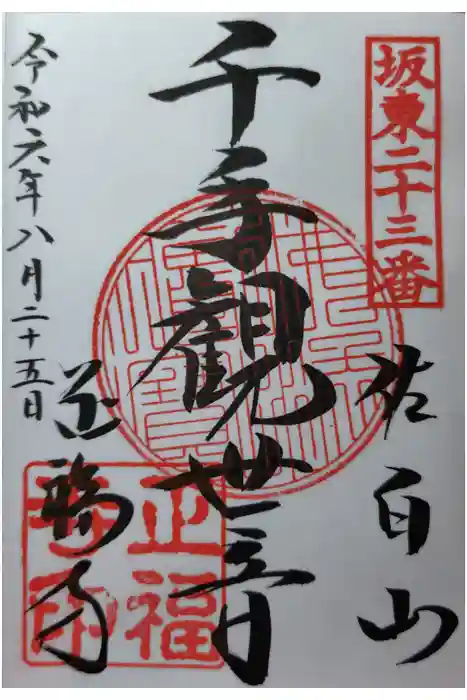 坂東二十三番
佐白山
千手觀世音
正福寺
令和六年八月二十五日
正福
寺印